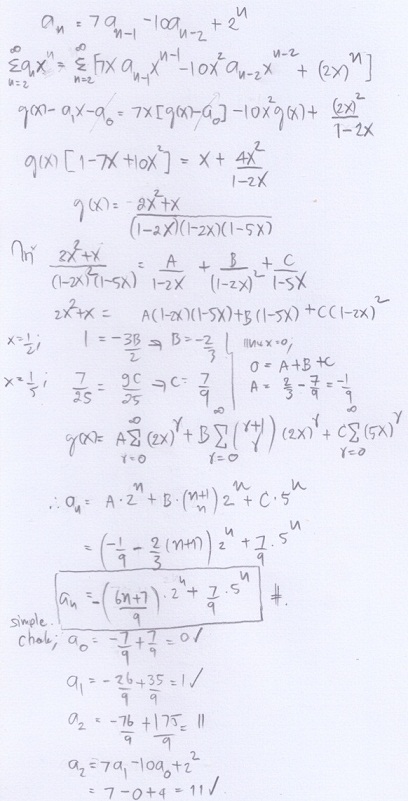 aₙ = 7aₙ₋₁ - 10aₙ₋₂ + 2ⁿ
∑_{n=2}^{∞} aₙxⁿ = ∑_{n=2}^{∞} [7x aₙ₋₁xⁿ⁻¹ - 10x²aₙ₋₂xⁿ⁻² + (2x)ⁿ]
g(x) - a₁x - a₀ = 7x[g(x) - a₀] - 10x²g(x) + (2x)²/(1-2x)
g(x)[1-7x+10x²] = x + 4x²/(1-2x)
g(x) = (2x²+x)/((1-2x)(1-2x)(1-5x))
จาก (2x²+x)/((1-2x)²(1-5x)) = A/(1-2x) + B/(1-2x)² + C/(1-5x)
2x²+x = A(1-2x)(1-5x) + B(1-5x) + C(1-2x)²
x=1/2; 1 = -3B/2 ⇒ B = -2/3 | แทน x=0;
0 = A+B+C
x=1/5; 7/25 = 9C/25 ⇒ C = 7/9 | A = 2/3 - 7/9 = -1/9
g(x) = A∑_{r=0}^{∞}(2x)^r + B∑_{r=0}^{∞}(r+1 r)(2x)^r + C∑_{r=0}^{∞}(5x)^r
∴ aₙ = A·2ⁿ + B·(n+1 n)2ⁿ + C·5ⁿ
= (-1/9 - 2/3(n+1))2ⁿ + 7/9·5ⁿ
aₙ = -((6n+7)/9)·2ⁿ + 7/9·5ⁿ #.
simple
check; a₀ = -7/9 + 7/9 = 0 ✓
a₁ = -26/9 + 35/9 = 1 ✓
a₂ = -76/9 + 175/9 = 11
a₂ = 7a₁ - 10a₀ + 2²
= 7 - 0 + 4 = 11 ✓